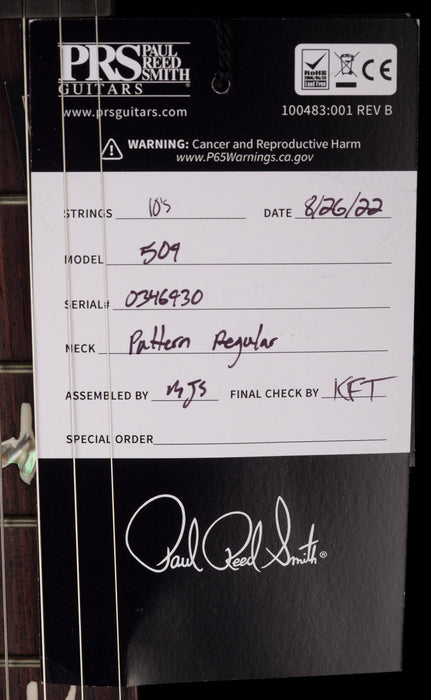 PRS PAUL REED SMITH
GUITARS
www.prsguitars.com
RoHS
Lead Free
CE
100483:001 REV B
WARNING: Cancer and Reproductive Harm
www.P65Warnings.ca.gov
STRINGS 10's DATE 8/26/22
MODEL 509
SERIAL# 0346930
NECK Pattern Regular
ASSEMBLED BY MJS FINAL CHECK BY KFT
SPECIAL ORDER
Paul Reed Smith®